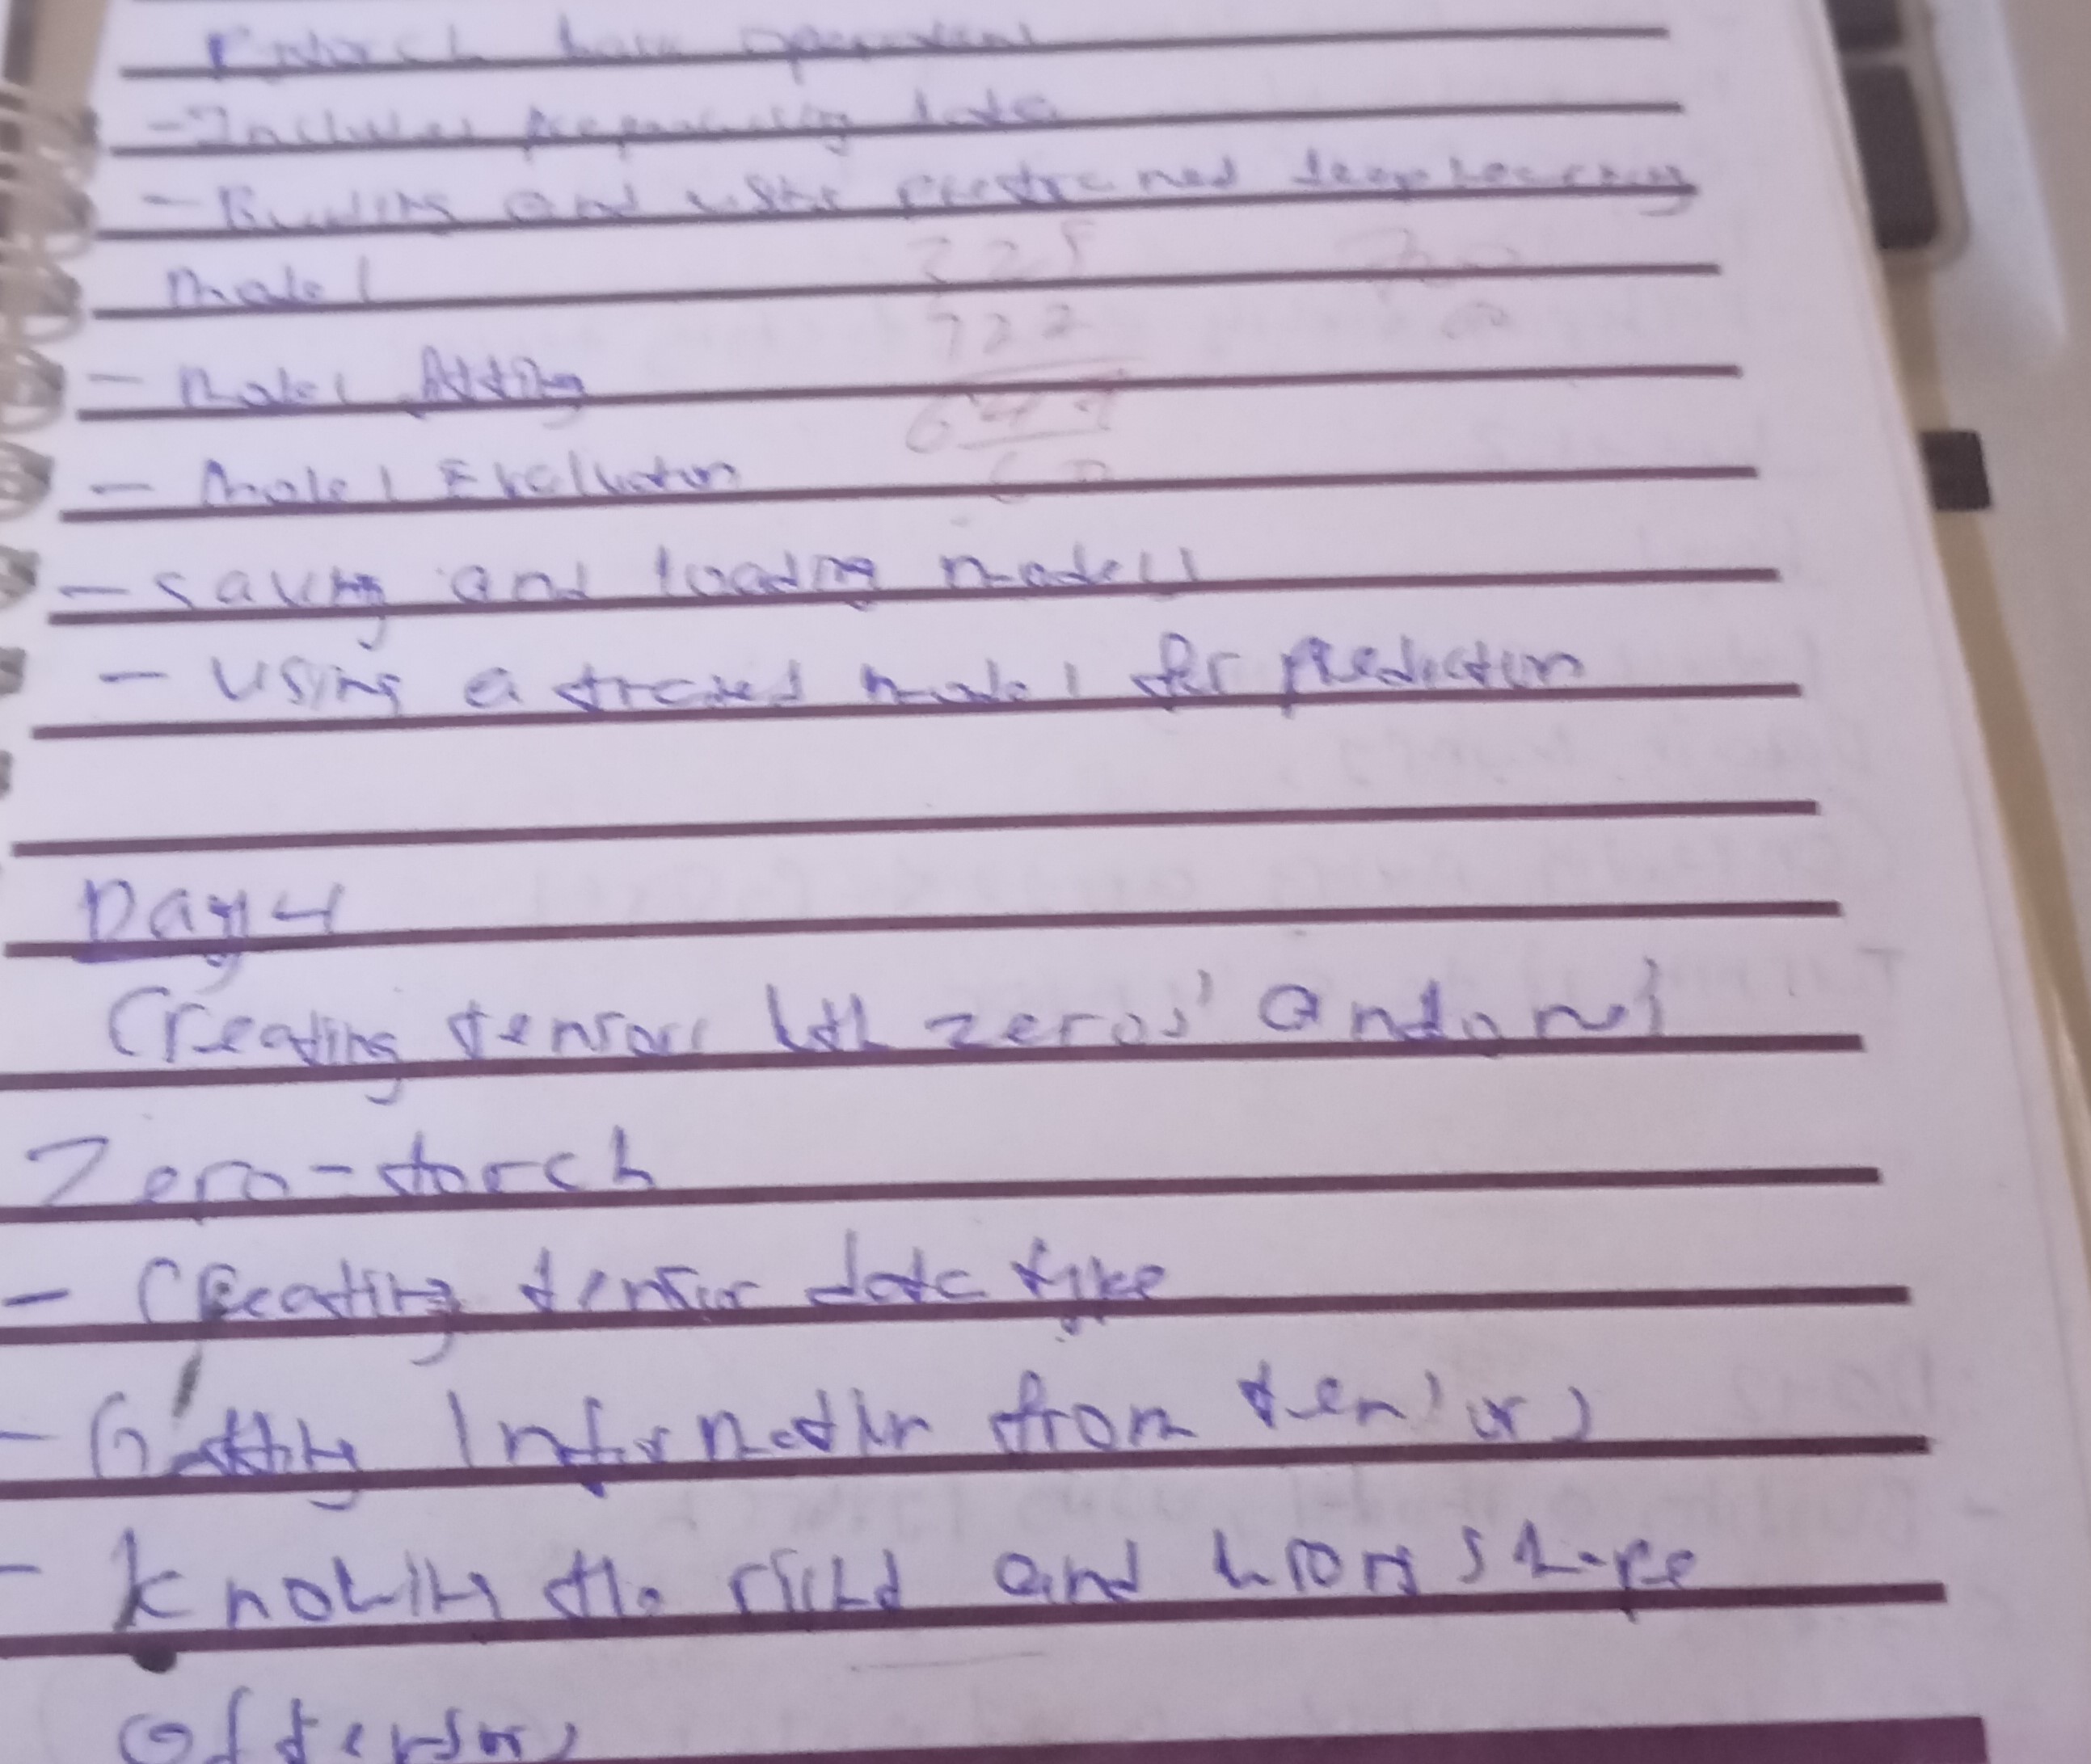 Pytorch basic operations
- Includes preprocessing data
- Building and using pretrained deep learning
model
- Model fitting
- Model Evaluation
- Saving and loading models
- Using a trained model for prediction
Day 4
Creating tensors with zeros' and ones
Zero-torch
- Creating tensor data type
- Getting Information from tensors
- Knowing the right and wrong shape
of tensors